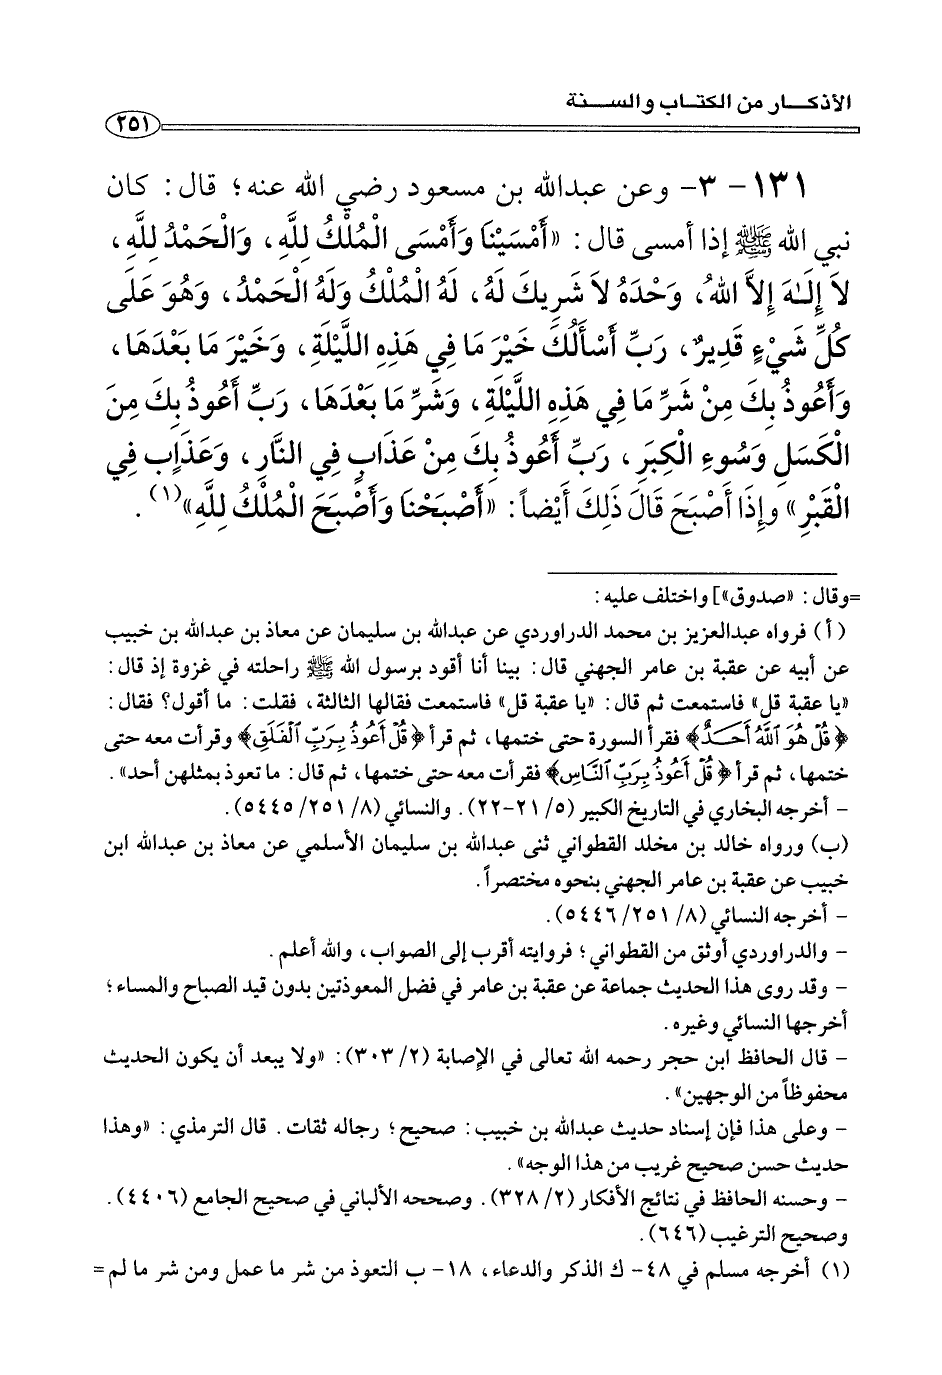 الأذكــار من الكتــاب والســنة
٢٥١
١٣١ - ٣- وعن عبدالله بن مسعود رضي الله عنه؛ قال: كان
نبي الله ﷺ إذا أمسى قال: «أَمْسَيْنَا وَأَمْسَى الْمُلْكُ لِلَّهِ، وَالْحَمْدُ لِلَّهِ،
لاَ إِلَـٰهَ إِلاَّ اللهُ، وَحْدَهُ لاَ شَرِيكَ لَهُ، لَهُ الْمُلْكُ وَلَهُ الْحَمْدُ، وَهُوَ عَلَى
كُلِّ شَيْءٍ قَدِيرٌ، رَبِّ أَسْأَلُكَ خَيْرَ مَا فِي هَذِهِ اللَّيْلَةِ، وَخَيْرَ مَا بَعْدَهَا،
وَأَعُوذُ بِكَ مِنْ شَرِّ مَا فِي هَذِهِ اللَّيْلَةِ، وَشَرِّ مَا بَعْدَهَا، رَبِّ أَعُوذُ بِكَ مِنَ
الْكَسَلِ وَسُوءِ الْكِبَرِ، رَبِّ أَعُوذُ بِكَ مِنْ عَذَابٍ فِي النَّارِ، وَعَذَابٍ فِي
الْقَبْرِ» وإِذَا أَصْبَحَ قَالَ ذَلِكَ أَيْضاً: «أَصْبَحْنَا وَأَصْبَحَ الْمُلْكُ لِلَّهِ»(١).
=وقال: «صدوق»] واختلف عليه:
(أ) فرواه عبدالعزيز بن محمد الدراوردي عن عبدالله بن سليمان عن معاذ بن عبدالله بن خبيب
عن أبيه عن عقبة بن عامر الجهني قال: بينا أنا أقود برسول الله ﷺ راحلته في غزوة إذ قال:
«يا عقبة قل» فاستمعت ثم قال: «يا عقبة قل» فاستمعت فقالها الثالثة، فقلت: ما أقول؟ فقال:
﴿قُلْ هُوَ ٱللَّهُ أَحَدٌ﴾ فقرأ السورة حتى ختمها، ثم قرأ ﴿قُلْ أَعُوذُ بِرَبِّ ٱلْفَلَقِ﴾ وقرأت معه حتى
ختمها، ثم قرأ ﴿قُلْ أَعُوذُ بِرَبِّ ٱلنَّاسِ﴾ فقرأت معه حتى ختمها، ثم قال: ما تعوذ بمثلهن أحد».
- أخرجه البخاري في التاريخ الكبير (٥/ ٢١-٢٢). والنسائي (٨/ ٢٥١/ ٥٤٤٥).
(ب) ورواه خالد بن مخلد القطواني ثنى عبدالله بن سليمان الأسلمي عن معاذ بن عبدالله ابن
خبيب عن عقبة بن عامر الجهني بنحوه مختصراً.
- أخرجه النسائي (٨/ ٢٥١/ ٥٤٤٦).
- والدراوردي أوثق من القطواني؛ فروايته أقرب إلى الصواب، والله أعلم.
- وقد روى هذا الحديث جماعة عن عقبة بن عامر في فضل المعوذتين بدون قيد الصباح والمساء؛
أخرجها النسائي وغيره.
- قال الحافظ ابن حجر رحمه الله تعالى في الإصابة (٢/ ٣٠٣): «ولا يبعد أن يكون الحديث
محفوظاً من الوجهين».
- وعلى هذا فإن إسناد حديث عبدالله بن خبيب: صحيح؛ رجاله ثقات. قال الترمذي: «وهذا
حديث حسن صحيح غريب من هذا الوجه».
- وحسنه الحافظ في نتائج الأفكار (٢/ ٣٢٨). وصححه الألباني في صحيح الجامع (٤٤٠٦).
وصحيح الترغيب (٦٤٦).
(١) أخرجه مسلم في ٤٨- ك الذكر والدعاء، ١٨- ب التعوذ من شر ما عمل ومن شر ما لم=